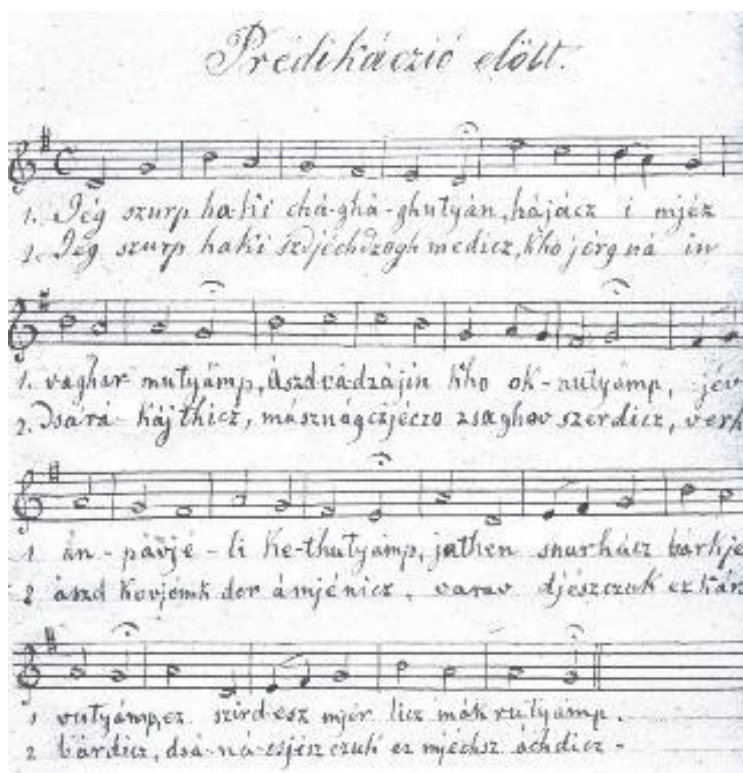 Prédikáczió előtt.
1. Jég szurp haki chá-ghá-ghutyán, hájácz i mjéz
2. Jég szurp haki szdjéchdzogh medicz, kho jérg ná in
1. vaghar nutyámp, Ászdvádzájin kho ok-nutyámp, jév
2. Dsárá-kájthicz, másznágczjéczo zsaghov szerdicz, verh
1 án-pávjé-li ke-thutyámp, jathen snurhácz bárkje
2 ászd kovjémk der ámjénicz, varav djészczuk ez kárz
1 vutyámp, ez szirdesz mjér licz mák rutyámp.
2 bárdicz, dsá-ná-csjészczuk ez mjéchsz áchdicz-